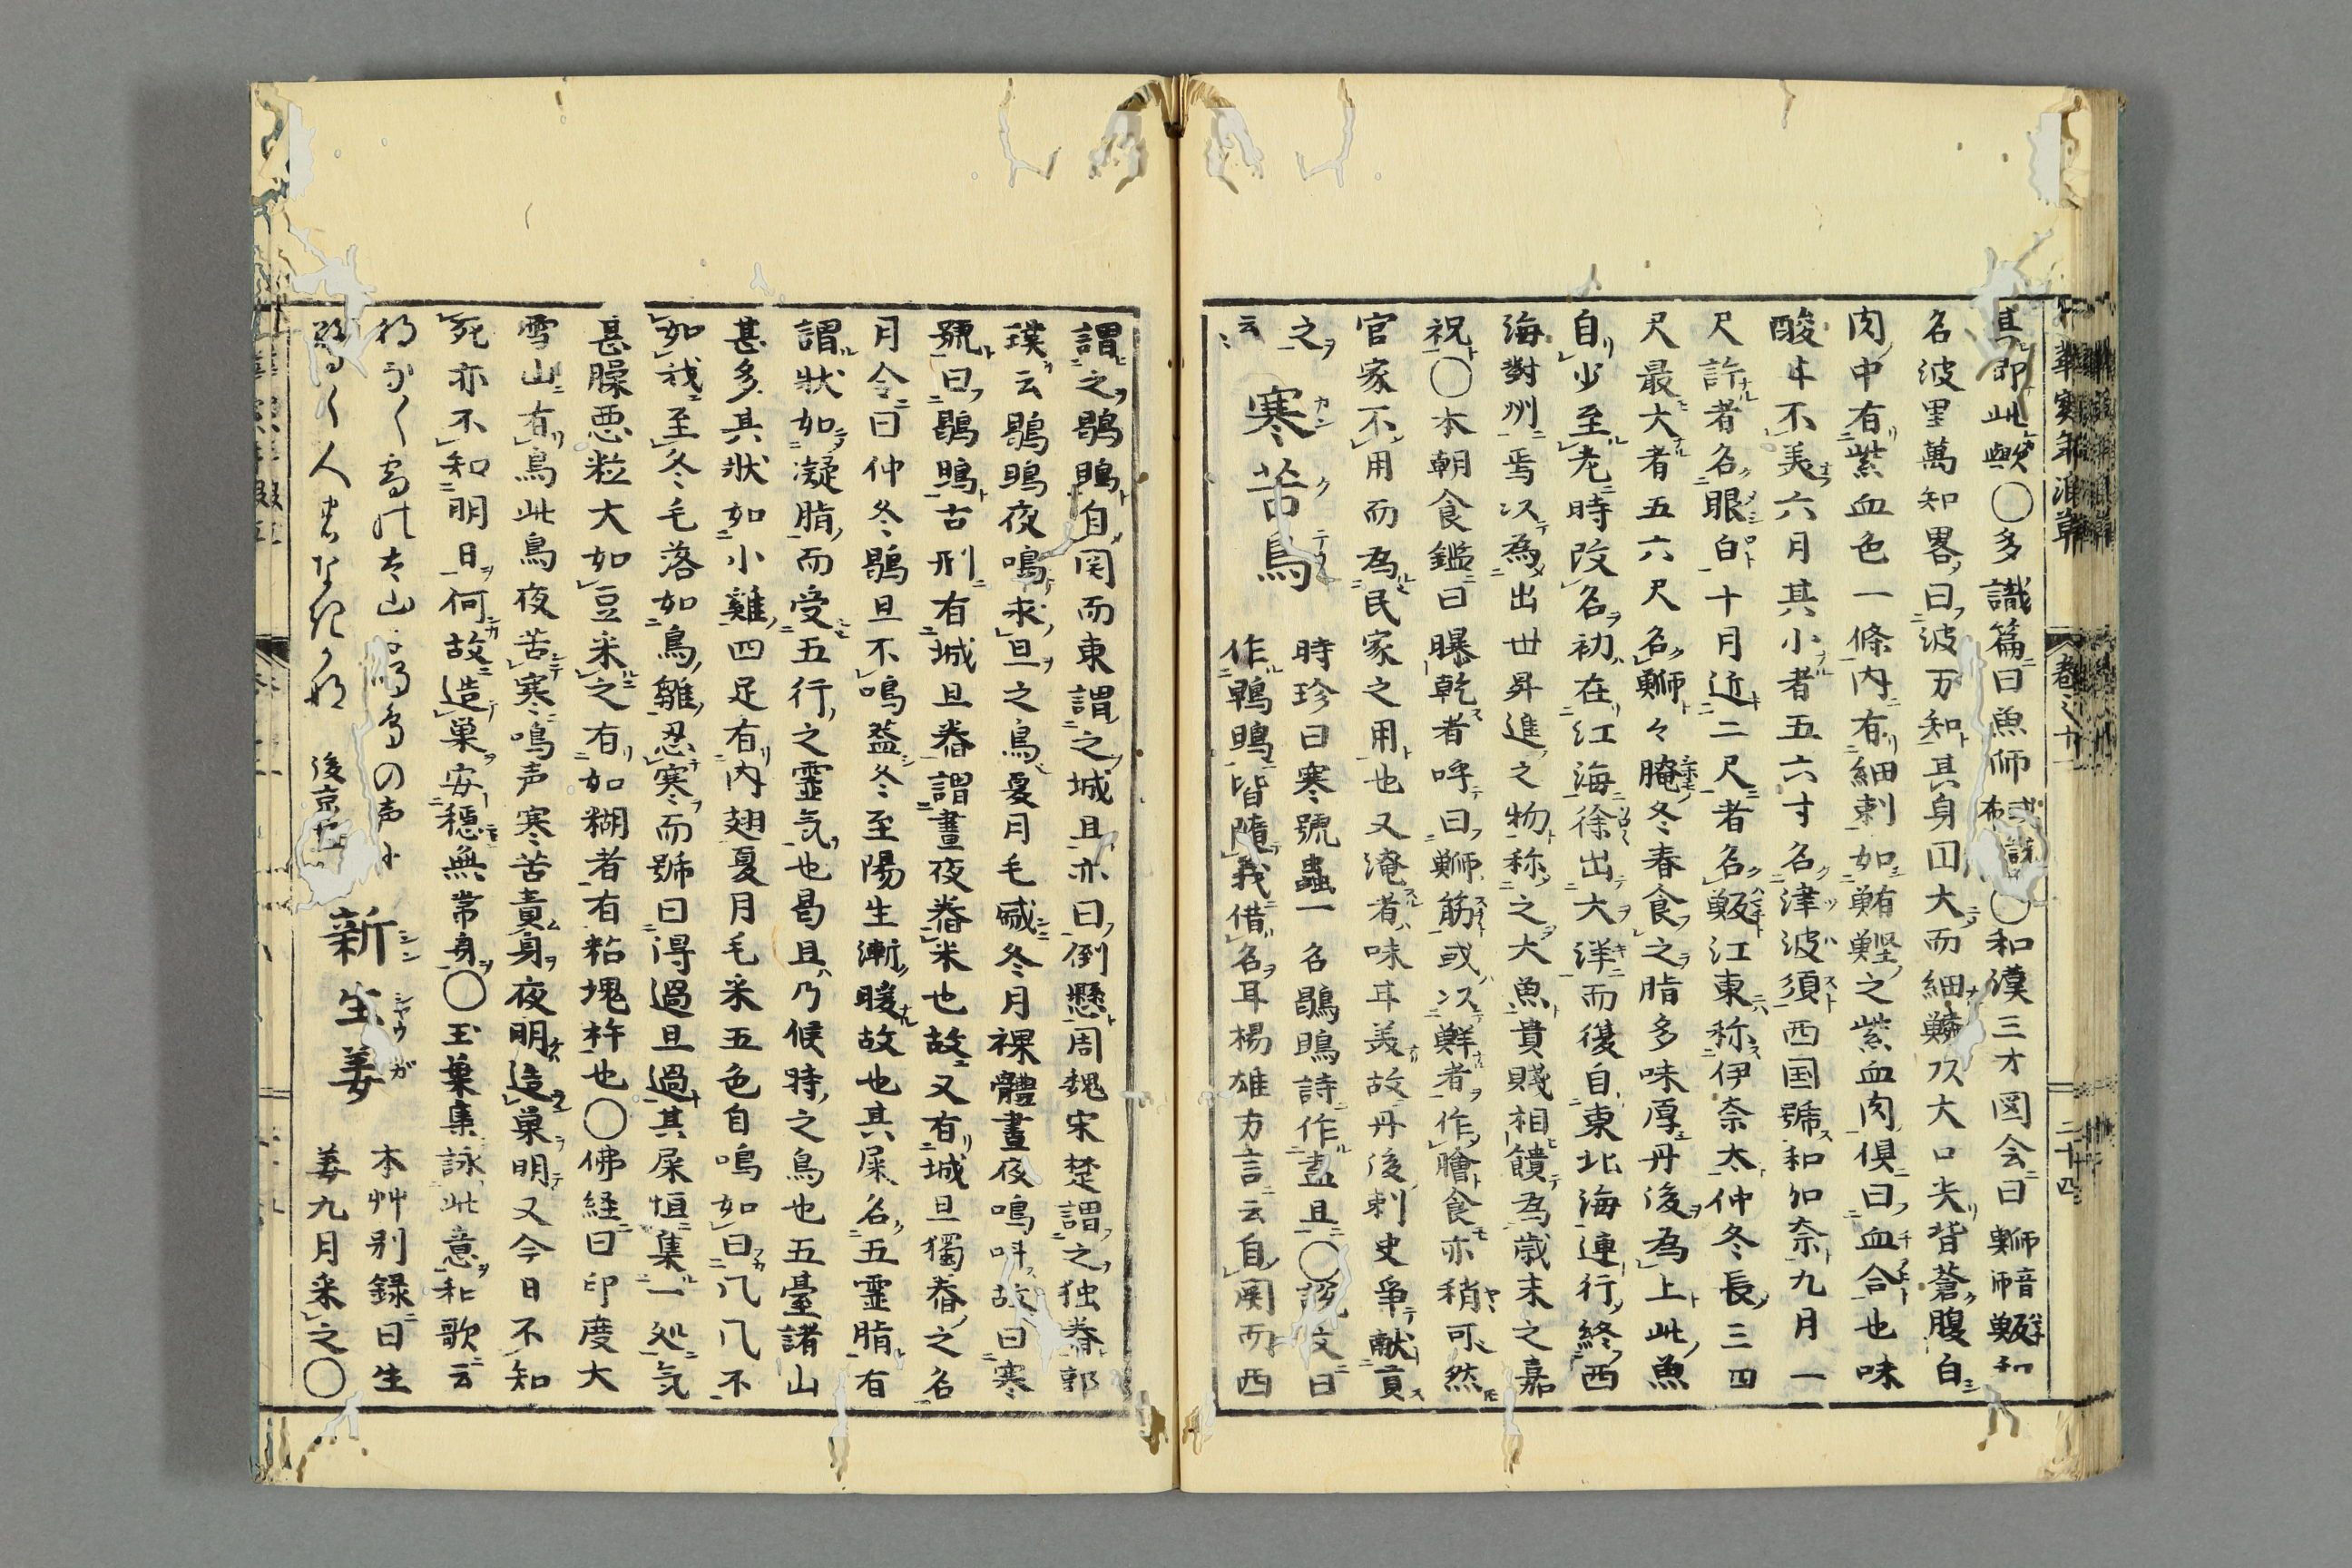 華實年浪草 卷之十一 二十四
其即此歟○多識篇曰魚師○和漢三才図会曰鰤音師鰀和
名波里萬知畧曰波万知其身円大而細鱗大口尖背蒼腹白
肉中有紫血色一條内有細刺如鮪鰹之紫血肉俱曰血合也味
酸甘不美六月其小者五六寸名津波須西国號和加奈九月一
尺許者名眼白十月近二尺者名魬江東称伊奈太仲冬長三四
尺最大者五六尺名鰤々腌冬春食之脂多味厚丹後為上此魚
自少至老時改名初在江海徐出大洋而復自東北海連行終西
海對州焉以為出世昇進之物称之大魚貴賤相饋為歳末之嘉
祝○本朝食鑑曰曝乾者呼曰鰤筋或以鮮者作膾食亦稍可然
官家不用而為民家之用也又淹者味甘美故丹後刺史爭献貢
之 寒苦鳥 カンクテウ 時珍曰寒號蟲一名鶡鴠詩作盍且○説文曰
云 作鶡鴠皆隨義借名耳楊雄方言云自関而西
謂之鶡鴠自関而東謂之城旦亦曰倒懸周魏宋楚謂之独舂郭
璞云鶡鴠夜鳴求旦之鳥夏月毛盛冬月裸體晝夜鳴叫故曰寒
號曰鶡鴠古刑有城旦舂謂晝夜舂米也故又有城旦獨舂之名
月令曰仲冬鶡旦不鳴蓋冬至陽生漸暖故也其屎名五靈脂有
謂状如凝脂而受五行之靈気也曷旦乃候時之鳥也五臺諸山
甚多其状如小雞四足有肉翅夏月毛采五色自鳴如曰八八不
如我至冬毛落如鳥雛忍寒而號曰得過且過其屎恒集一処気
甚臊悪粒大如豆采之有如糊者有粘塊杵也○佛経曰印度大
雪山有鳥此鳥夜苦寒鳴声寒苦責身夜明造巣明又今日不知
死亦不知明日何故造巣安穏無常身○玉葉集詠此意和歌云
山 鳥の声に 新生姜 シンシヤウガ 本艸別録曰生
人 後京極 姜九月采之○